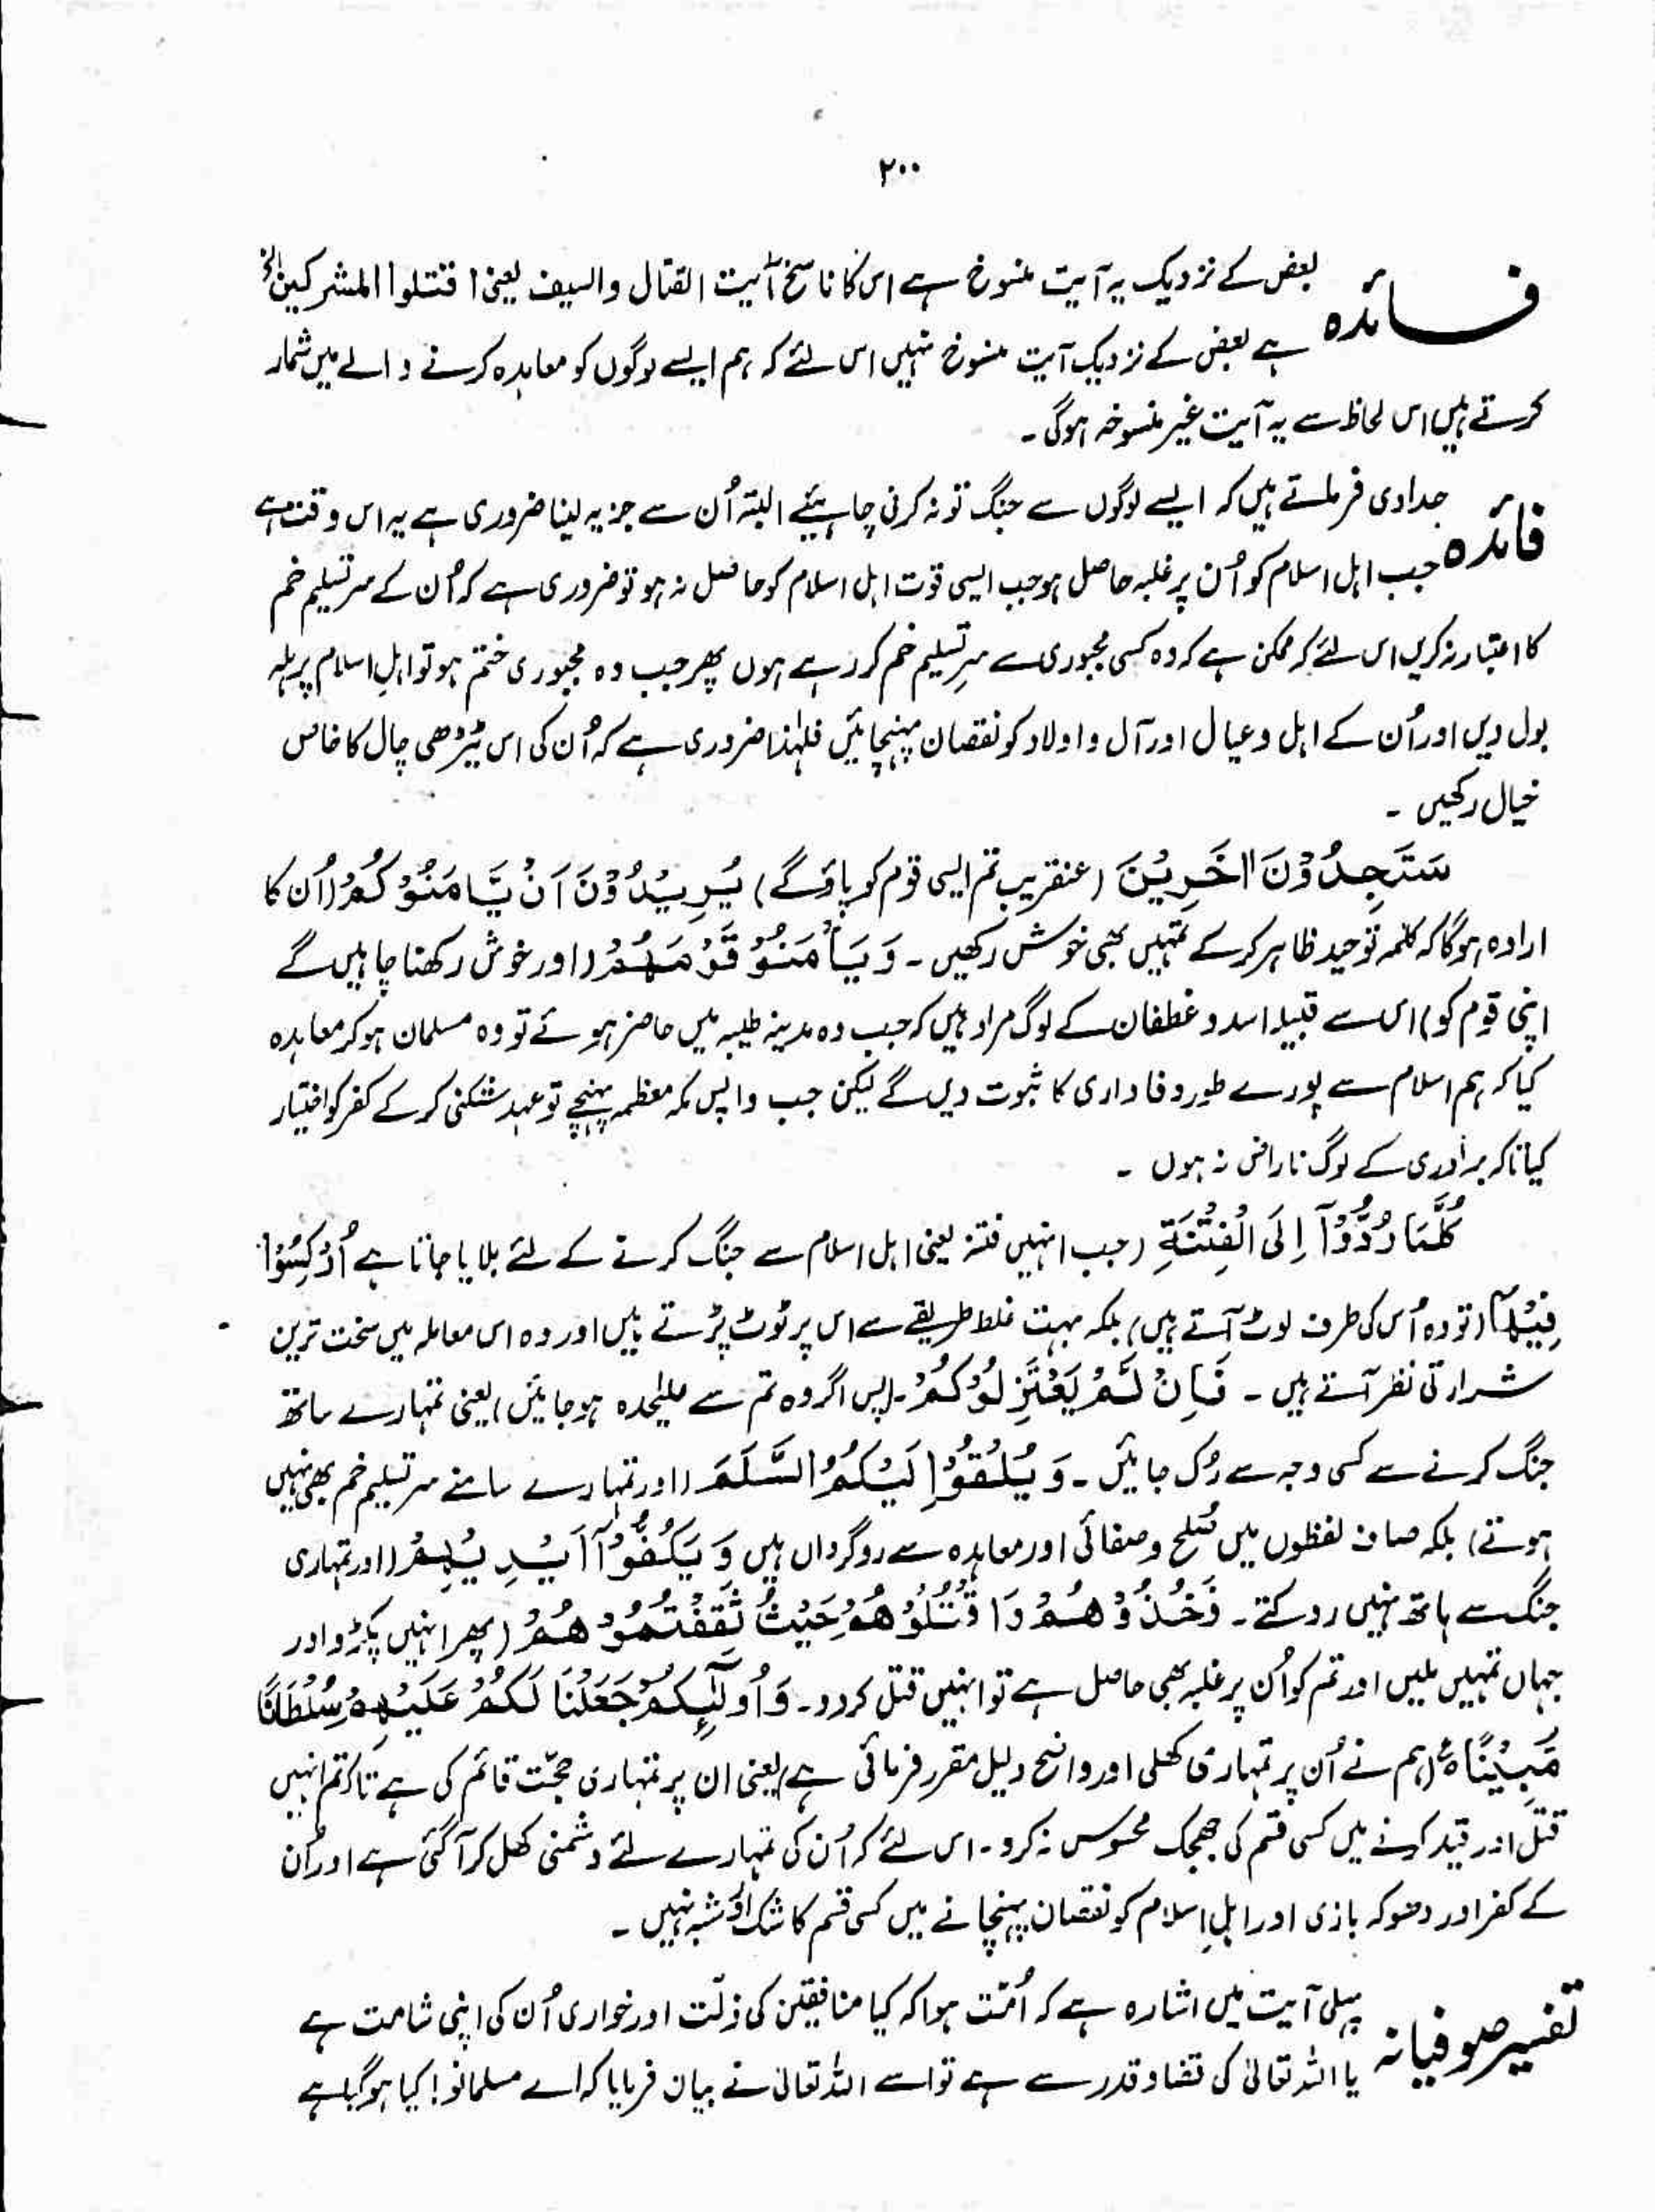 ۲۰۰
فائدہ بعض کے نزدیک یہ آیت منسوخ ہے اس کا ناسخ آیت القتال والسیف یعنی اقتلوا المشرکین الخ
ہے بعض کے نزدیک آیت منسوخ نہیں اس لئے کہ ہم ایسے لوگوں کو معاہدہ کرنے والے میں شمار
کرتے ہیں اس لحاظ سے یہ آیت غیر منسوخہ ہوگی۔
فائدہ حدادی فرماتے ہیں کہ ایسے لوگوں سے جنگ تو نہ کرنی چاہیئے البتہ اُن سے جزیہ لینا ضروری ہے یہ اس وقت ہے
جب اہل اسلام کو اُن پر غلبہ حاصل ہو جب ایسی قوت اہل اسلام کو حاصل نہ ہو تو ضروری ہے کہ اُن کے سر تسلیم خم
کا اعتبار نہ کریں اس لئے کہ ممکن ہے کہ وہ کسی مجبوری سے سرِ تسلیم خم کر رہے ہوں پھر جب وہ مجبوری ختم ہو تو اہلِ اسلام پر ہلہ
بول دیں اور اُن کے اہل و عیال اور آل و اولاد کو نقصان پہنچائیں فلہٰذا ضروری ہے کہ اُن کی اس ٹیڑھی چال کا خاص
خیال رکھیں ۔
سَتَجِدُوْنَ اٰخَرِیْنَ (عنقریب تم ایسی قوم کو پاؤ گے) یُرِیْدُوْنَ اَنْ یَّاْمَنُوْکُمْ (اُن کا
ارادہ ہوگا کہ کلمہ توحید ظاہر کرکے تمہیں بھی خوش رکھیں ۔ وَیَاْمَنُوْ قَوْمَھُمْ (اور خوش رکھنا چاہیں گے
اپنی قوم کو) اس سے قبیلہ اسد و غطفان کے لوگ مراد ہیں کہ جب وہ مدینہ طیبہ میں حاضر ہوئے تو وہ مسلمان ہو کر معاہدہ
کیا کہ ہم اسلام سے پورے طور وفاداری کا ثبوت دیں گے لیکن جب واپس مکہ معظمہ پہنچے تو عہد شکنی کر کے کفر کو اختیار
کیا تاکہ برادری کے لوگ ناراض نہ ہوں ۔
کُلَّمَا رُدُّوْٓا اِلَی الْفِتْنَۃِ (جب انہیں فتنہ یعنی اہل اسلام سے جنگ کرنے کے لئے بلایا جاتا ہے اُرْکِسُوْا
فِیْھَا (تو وہ اُس کی طرف لوٹ آتے ہیں) بلکہ بہت غلط طریقے سے اس پر ٹوٹ پڑتے ہیں اور وہ اس معاملہ میں سخت ترین
شرارتی نظر آتے ہیں ۔ فَاِنْ لَّمْ یَعْتَزِلُوْکُمْ ۔ (پس اگر وہ تم سے علیٰحدہ ہوجائیں) یعنی تمہارے ساتھ
جنگ کرنے سے کسی وجہ سے رُک جائیں ۔ وَیُلْقُوْٓا اِلَیْکُمُ السَّلَمَ (اور تمہارے سامنے سر تسلیم خم بھی نہیں
ہوتے) بلکہ صاف لفظوں میں صُلح و صفائی اور معاہدہ سے روگرداں ہیں وَیَکُفُّوْٓا اَیْدِیَھُمْ (اور تمہاری
جنگ سے ہاتھ نہیں روکتے ۔ فَخُذُوْھُمْ وَاقْتُلُوْھُمْ حَیْثُ ثَقِفْتُمُوْھُمْ (پھر انہیں پکڑو اور
جہاں تمہیں ملیں اور تم کو اُن پر غلبہ بھی حاصل ہے تو انہیں قتل کردو ۔ وَاُولٰٓئِکُمْ جَعَلْنَا لَکُمْ عَلَیْھِمْ سُلْطَانًا
مُّبِیْنًا (ہم نے اُن پر تمہاری کھلی اور واضح دلیل مقرر فرمائی ہے) یعنی ان پر تمہاری حجّت قائم کی ہے تاکہ تم انہیں
قتل اور قید کرنے میں کسی قسم کی جھجک محسوس نہ کرو ۔ اس لئے کہ اُن کی تمہارے لئے دشمنی کھل کر آگئی ہے اور اُن
کے کفر اور دھوکہ بازی اور اہلِ اسلام کو نقصان پہنچانے میں کسی قسم کا شک اور شبہ نہیں ۔
تفسیر صوفیانہ پہلی آیت میں اشارہ ہے کہ اُمّت ہوا کہ کیا منافقین کی ذلّت اور خواری اُن کی اپنی شامت ہے
یا اللہ تعالیٰ کی قضا و قدر سے ہے تو اسے اللہ تعالیٰ نے بیان فرمایا کہ اے مسلمانو! کیا ہوگیا ہے